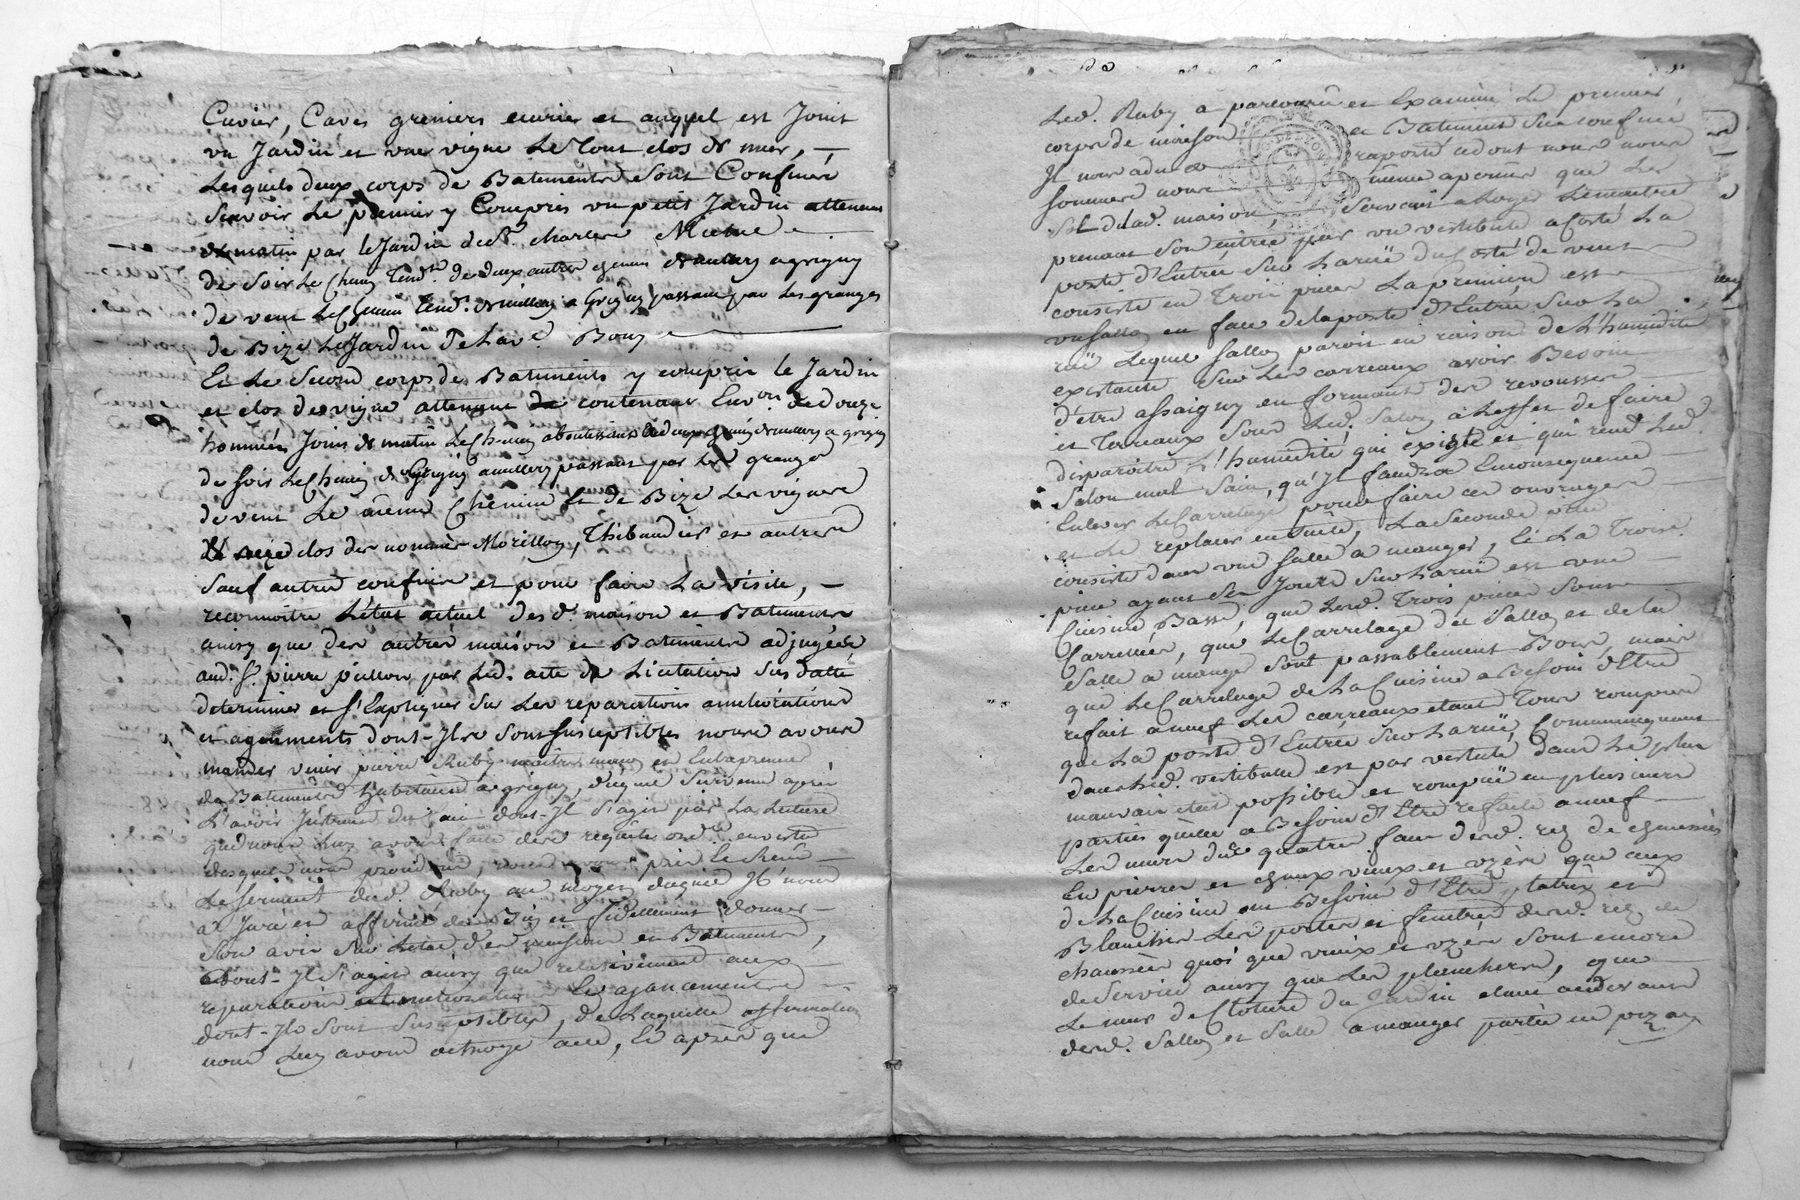 Cuvier, Caves greniers ecurier et auquel est Joint
un Jardin et une vigne Le Tout clos de mur,
Lesquels deux corps de Batiments Sont Confinés
Scavoir Le premier y Compris un petit Jardin attenant
de matin par le Jardin de Sr. charles
de Soir Le Chemin Tend.t de deux autres chemins a grigny
de vent Le Chemin Tend.t de millery a Grigny passant par Les granges
de Bize Le Jardin De La ve. Bony
Et Le Second corps de Batiments y compris le Jardin
et clos de vigne attenant contenant Environ de douze
hommées Joint de matin Le Chemin aboutissant a grigny
de soir Le Chemin de Grigny a millery passant par les granges
de vent Le même Chemin Et de Bize Les vignes
clos des nommés Morillon, Thibaudier et autres
Sauf autres confins et pour faire La visite,
reconnoitre L'état actuel des d. maison et Batiments
ainsy que des autres maison et Batiments adjugées
aud. Sr. pierre pillion par Led. acte de Licitation Sus datté
determiner et S'Expliquer Sur Les reparations ameliorations
et agréments dont-Ils Sont Susceptibles nous avons
mander venir pierre Ruby maitre maçon et Entrepreneur
de Batiments habitant a grigny, Lequel Survenu après
L'avoir Instruit du fait dont-Il S'agit par La Lecture
que nous Luy avons faite des requête ord.ce en vertu
desquels nous procédons, nous avons pris Le Receu
Le Serment dud. Ruby au moyen duquel Il nous
a Juré et affirmé de bien et fidellement donner
Son avis Sur L'etat des maison et Batiments,
dont-Il S'agit ainsy que relativement aux
reparations ameliorations Et agancements
dont-Ils Sont Susceptibles, de Laquelle affirmation
nous Luy avons octroyé acte, Et après que
Led. Ruby a parcouru et Examiné Le premier
corps de maison et Batiment Sus confiné
Il nous a raporté ce dont nous nous
sommes nous même aperçus que Le
Sol de lad. maison Servant a Loger Le maitre
prenant Son entrée par un vestibule a Costé La
porte d'Entrée Sur La rue du Costé de vent
consiste en Trois pieces La premiere est
un Sallon en face de la porte d'Entrée Sur La
rue Lequel Sallon paroit en raison de L'humidité
existante Sur Les carreaux avoir Besoin
d'être assaigny en formant des
et Terreaux Sous Led. Salon a L'effet de faire
disparoitre L'humidité qui existe et qui rend Led.
Salon mal Sain, qu'Il faudra En conséquence
Enlever Le Carrelage pour faire ces ouvrages
et Le replacer ensuite, La Seconde piece
consiste dans une Salle a manger, Et La Trois.
piece ayant Ses Jours Sur La rue est une
Cuisine Basse, que Lesd. Trois pieces Sont
Carrelées, que Le Carrelage de Sallon et de la
Salle a manger Sont passablement Bons, mais
que Le Carrelage de La Cuisine a Besoin d'Etre
refait a neuf Les carreaux etant Tous rompus
que La porte d'Entrée Sur La rue, Communiquant
dans Led. vestibule est par vetusté dans Le plus
mauvais état possible et rompue en plusieurs
parties qu'elle a Besoin d'Etre refaite a neuf
Les murs des quatre faces dud. rez de chaussée
En pierres et chaux vieux et uzés que ceux
de La Cuisine ont Besoin d'Etre platrés et
Blanchis Les portes et fenêtres dud. rez de
chaussée quoi que vieux et uzés Sont encore
de Service ainsy que Les planchers, que
Le mur de Cloture du Jardin etant au devant
desd. Sallon et Salle a manger partie en pizay